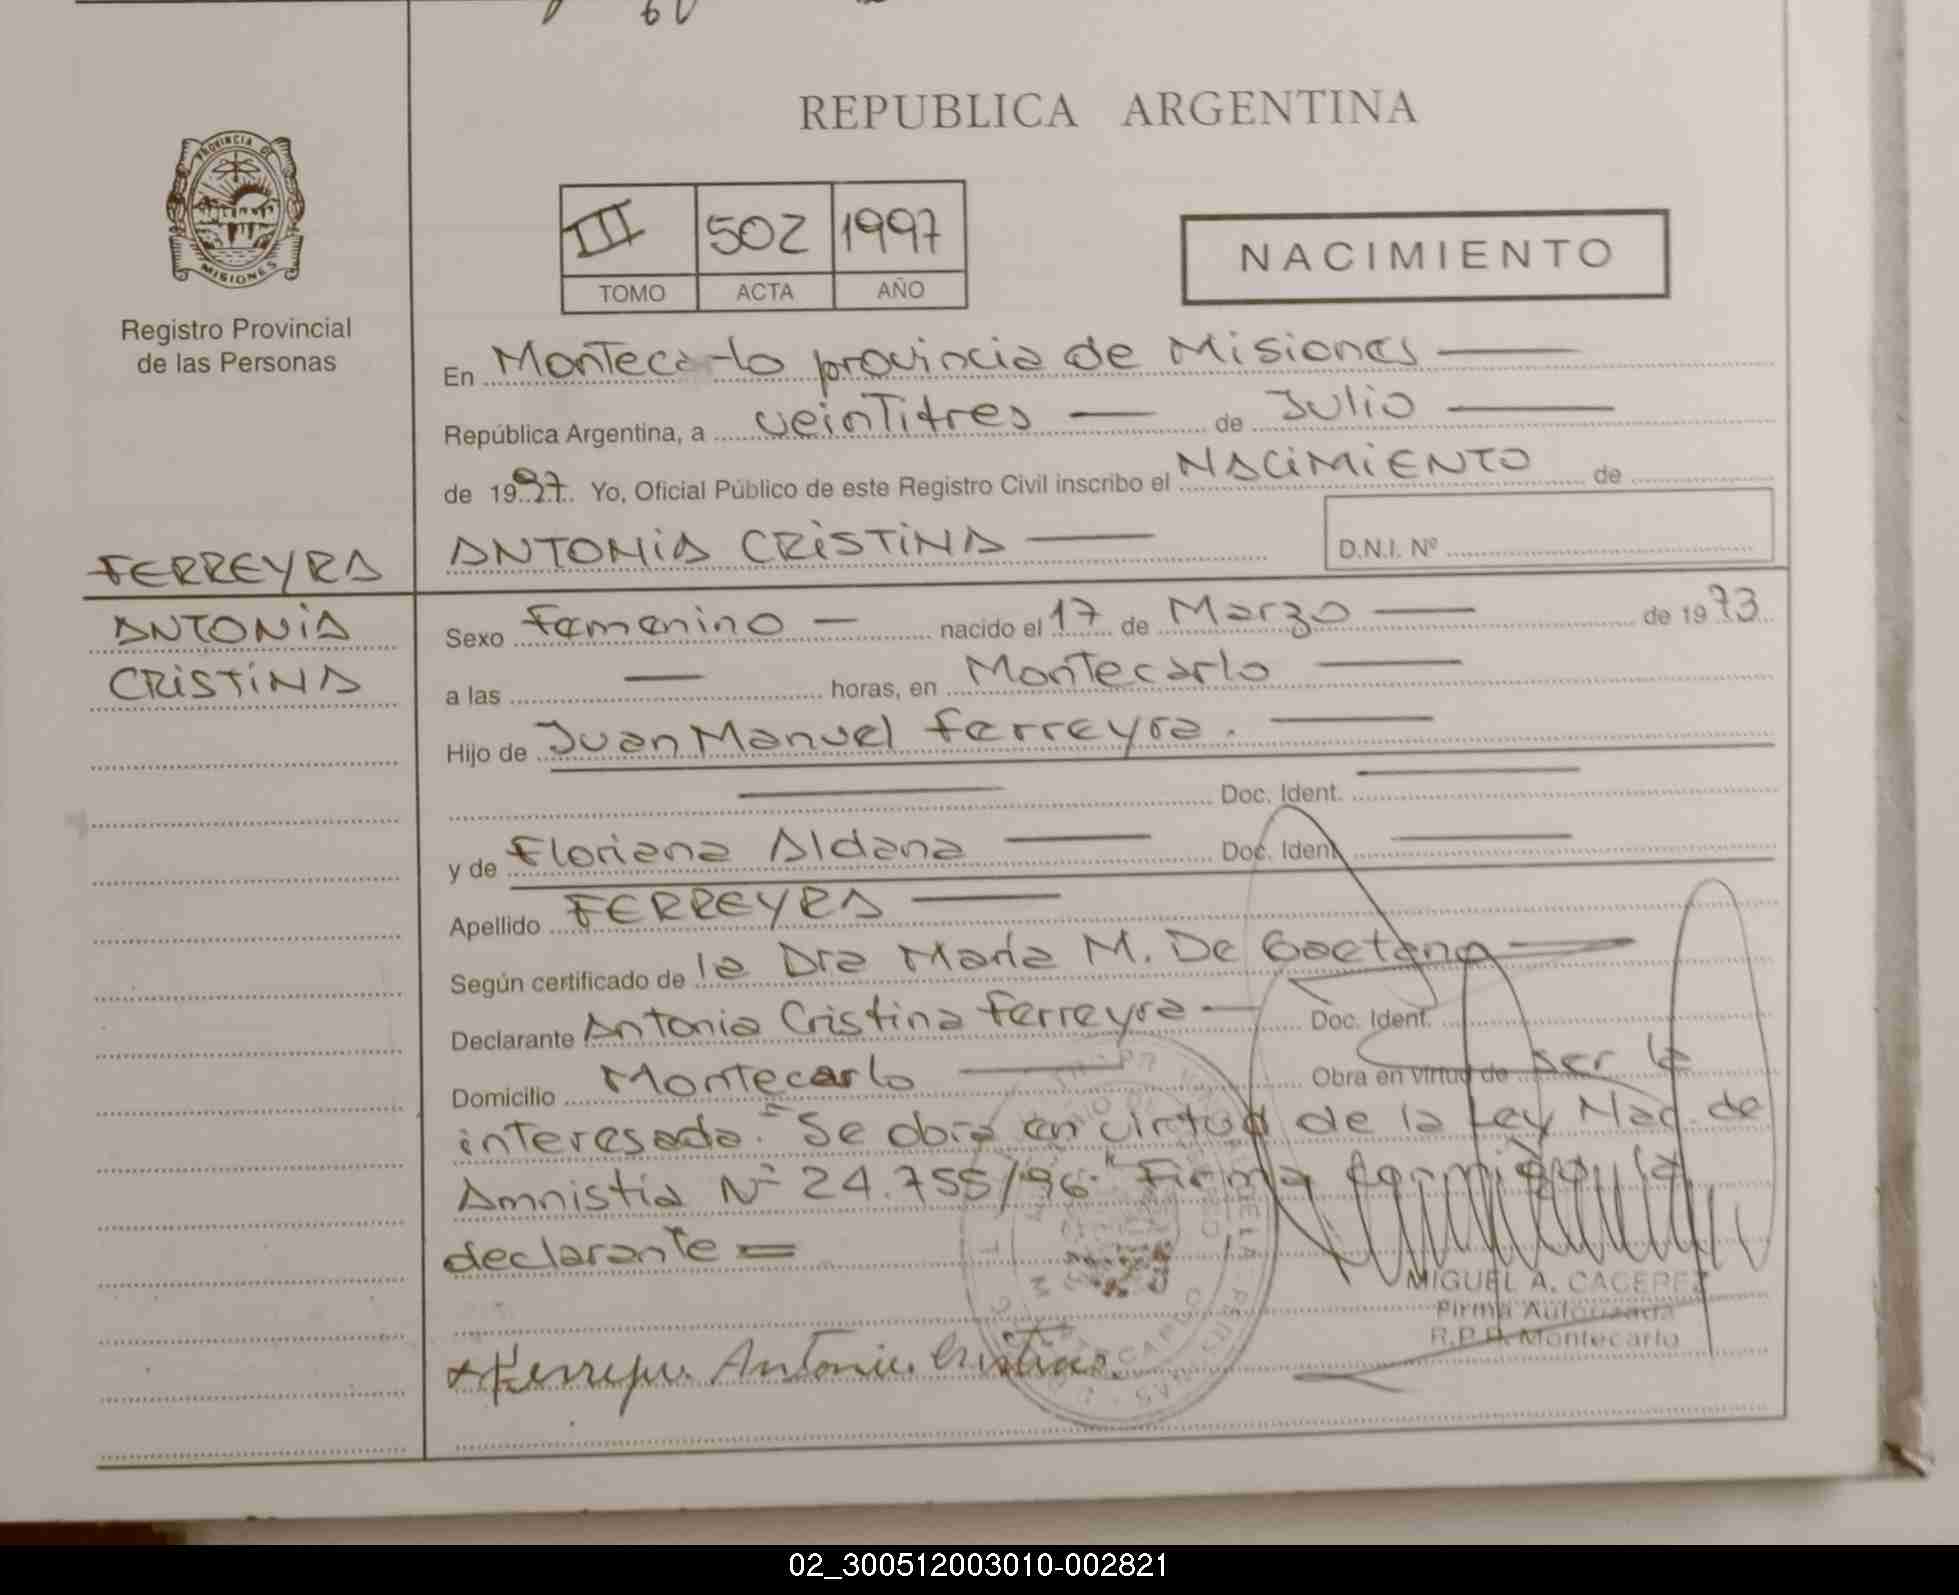 REPUBLICA ARGENTINA
PROVINCIA DE
MISIONES
Registro Provincial
de las Personas
III 502 1997
TOMO ACTA AÑO
NACIMIENTO
En Montecarlo provincia de Misiones
República Argentina, a veintitres de Julio
de 1997. Yo, Oficial Público de este Registro Civil inscribo el NACIMIENTO de
ANTONIA CRISTINA
D.N.I. Nº
FERREYRA
ANTONIA
CRISTINA
Sexo Femenino nacido el 17 de Marzo de 1973
a las horas, en Montecarlo
Hijo de Juan Manuel Ferreyra.
Doc. Ident.
y de Floriana Aldana Doc. Ident.
Apellido FERREYRA
Según certificado de la Dra María M. De Gaetano
Declarante Antonia Cristina Ferreyra Doc. Ident.
Domicilio Montecarlo Obra en virtud de ser la
interesada. "Se obra en virtud de la Ley Nac. de
Amnistia Nº 24.755/96" Firma la
declarante =
MIGUEL A. CACEREZ
Firma Autorizada
R.P.P. Montecarlo
Antonia Cristina
02_300512003010-002821